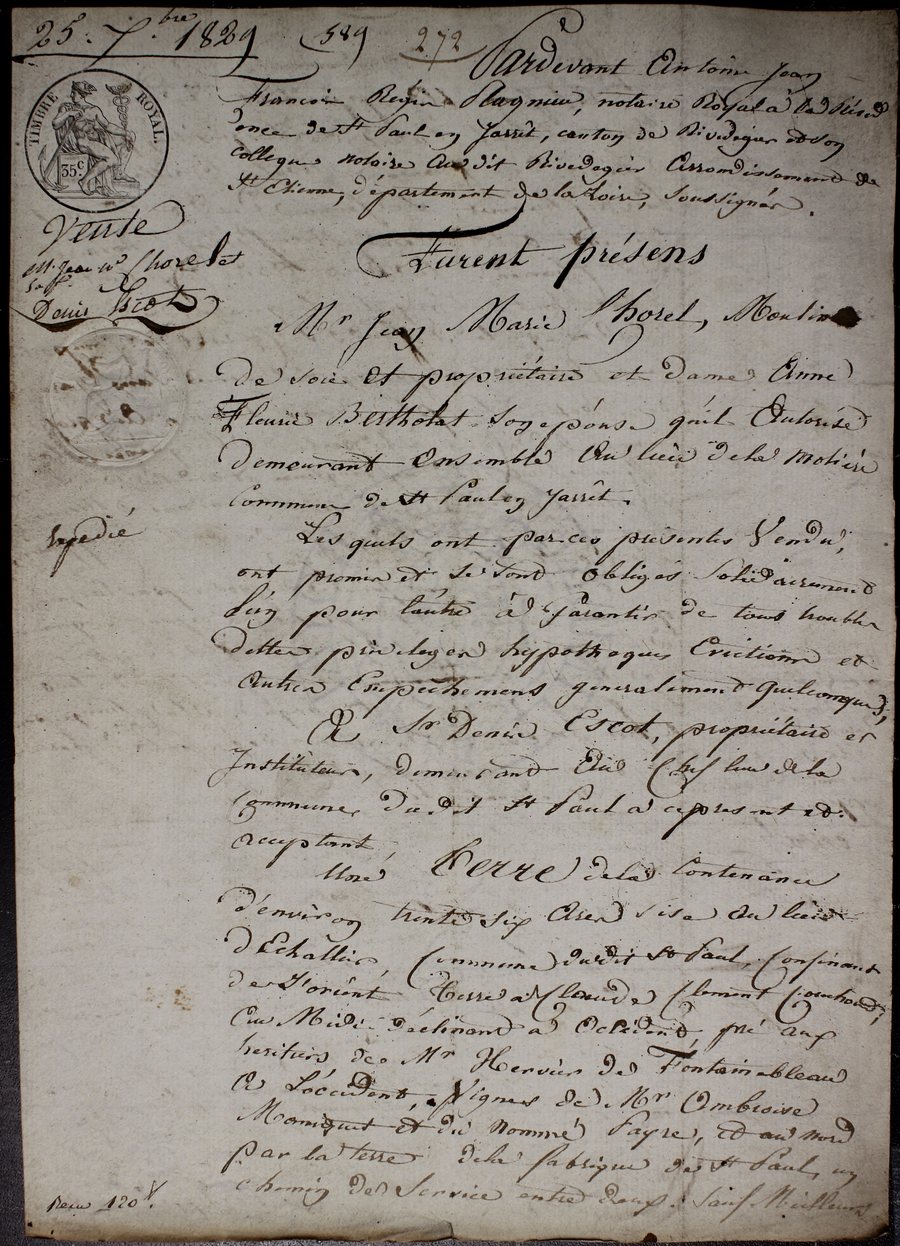 25. 7.bre 1829
589
272
TIMBRE ROYAL.
35.c
Vente
Mr. Jean Mie Thorel et
Sr.
Denis Escot
Expedié
Reçu 120 f.
Pardevant Antoine Jean
François Régis notaire Royal à la Résid
ence de St Paul en Jarrêt, canton de Rivedegier et son
collegue notaire audit Rivedegier arrondissement de
St Etienne, département de la Loire, soussignés.
Furent présens
Mr Jean Marie Thorel, Moulinier
de soie et propriétaire et dame Anne
Fleurie Bertholat son épouse qu'il autorise
demeurant ensemble au lieu de la
Commune de St Paul en Jarrêt.
Lesquels ont par ces présentes Vendu,
ont promis et se sont obligés solidairement
l'un pour l'autre à garantir de tous troubles
dettes privileges hypotheques Evictions et
autres Empêchemens generalement quelconques,
A Sr Denis Escot, propriétaire et
Instituteur, demeurant au chef lieu de la
Commune dudit St Paul à ce présent et
acceptant
Une Terre de la Contenance
d'environ trente six ares sise au lieu
d'Echallier, Commune dudit St Paul, Confinant
de l'orient Terre à Claude Clement
au Midi déclinant à Occident, pré aux
heritiers de Mr Hervier de Fontainebleau
A L'occident, Vignes de Mr Ambroise
et du nommé Fayre, et au nord
par la terre de la fabrique de St Paul, un
chemin de Service entre deux. Sauf Meilleurs